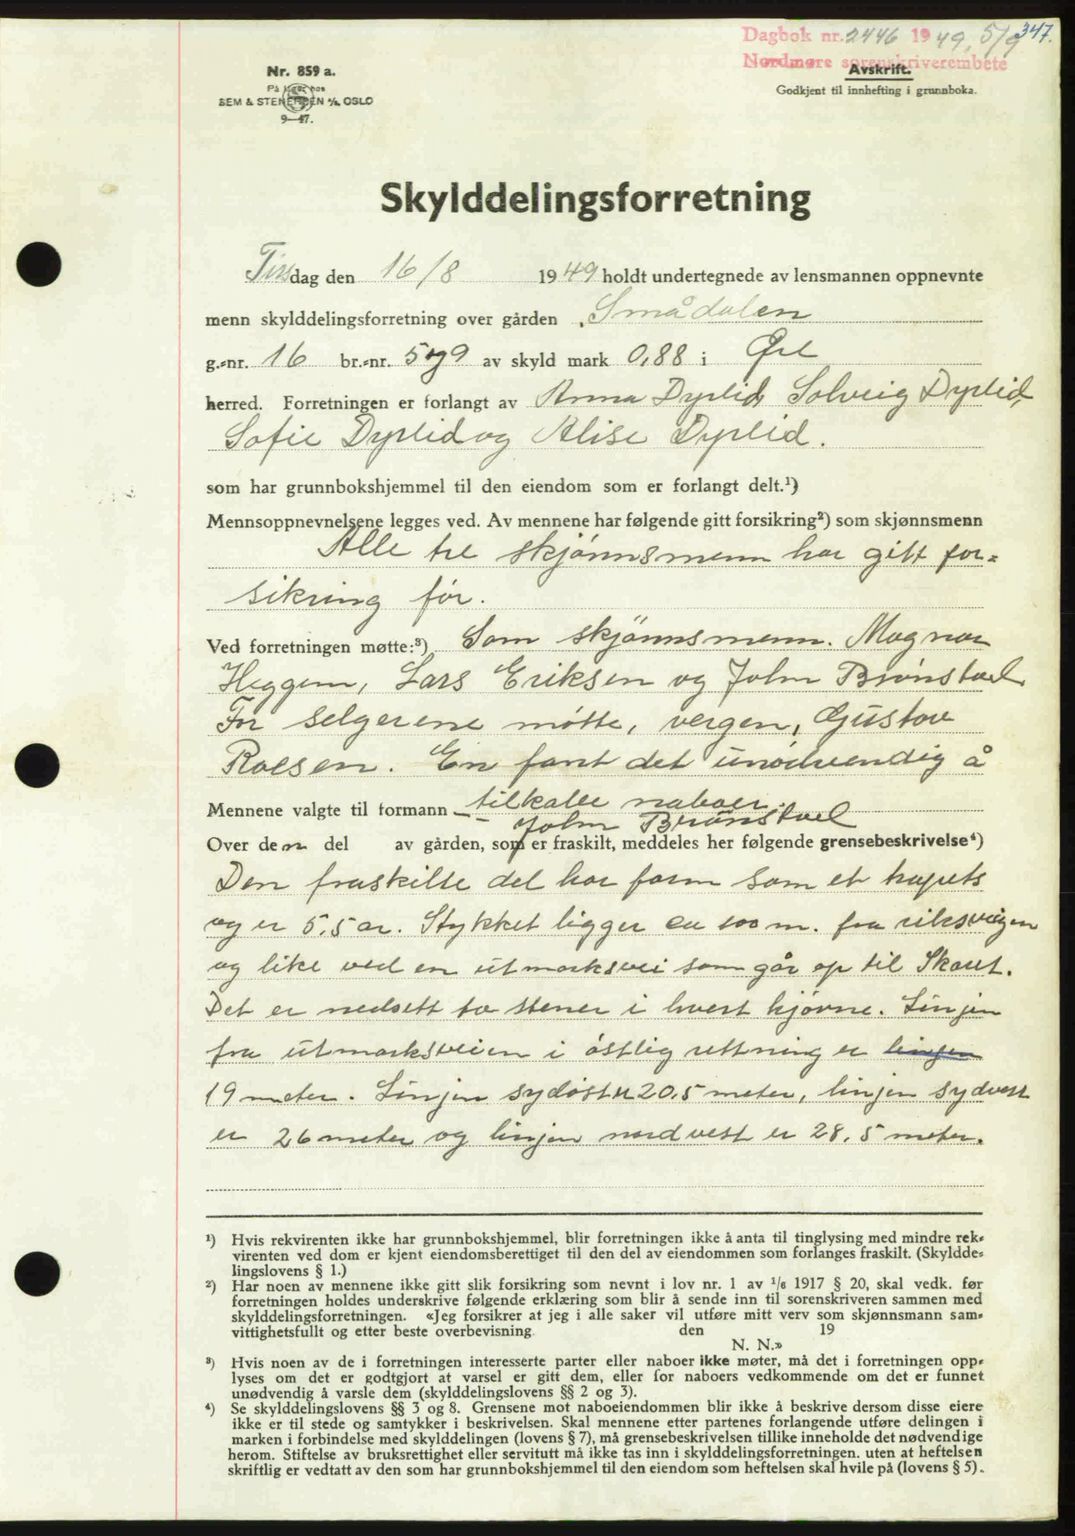 Dagbok nr. 2446 1949, 5/9 347.
Nordmøre sorenskriverembete
Avskrift.
Godkjent til innhefting i grunnboka.
Nr. 859 a.
På lager hos
SEM & STENERSEN A/S, OSLO
9—47.
Skylddelingsforretning
Tirsdag den 16/8 1949 holdt undertegnede av lensmannen oppnevnte
menn skylddelingsforretning over gården Smådalen
g.-nr. 16 br.-nr. 5 og 9 av skyld mark 0,88 i Øre
herred. Forretningen er forlangt av Anna Dyrlid, Solveig Dyrlid,
Sofie Dyrlid og Alise Dyrlid.
som har grunnbokshjemmel til den eiendom som er forlangt delt.¹)
Mennsoppnevnelsene legges ved. Av mennene har følgende gitt forsikring²) som skjønnsmenn
Alle tre skjønnsmenn har gitt for-
sikring før.
Ved forretningen møtte:³) Som skjønnsmenn. Magnar
Heggem, Lars Eriksen og John Brønstad.
For selgerene møtte, vergen, Gustav
Roesen. En fant det unødvendig å
tilkalle naboer.
Mennene valgte til formann — John Brønstad
Over den del av gården, som er fraskilt, meddeles her følgende grensebeskrivelse⁴)
Den fraskilte del har form som et trapets
og er 5,5 ar. Stykket ligger ca 100 m. fra riksveigen
og like ved en utmarksvei som går op til Skaret.
Det er nedsett to stener i hvert hjørne. Linjen
fra utmarksveien i østlig rettning er linjen
19 meter. Linjen sydøst er 20,5 meter, linjen sydvest
er 26 meter og linjen nordvest er 28,5 meter.
¹) Hvis rekvirenten ikke har grunnbokshjemmel, blir forretningen ikke å anta til tinglysing med mindre rek-
virenten ved dom er kjent eiendomsberettiget til den del av eiendommen som forlanges fraskilt. (Skyldde-
lingslovens § 1.)
²) Har noen av mennene ikke gitt slik forsikring som nevnt i lov nr. 1 av ¹/₆ 1917 § 20, skal vedk. før
forretningen holdes underskrive følgende erklæring som blir å sende inn til sorenskriveren sammen med
skylddelingsforretningen. «Jeg forsikrer at jeg i alle saker vil utføre mitt verv som skjønnsmann sam-
vittighetsfullt og etter beste overbevisning den 19
N. N.»
³) Hvis noen av de i forretningen interesserte parter eller naboer ikke møter, må det i forretningen opp-
lyses om det er godtgjort at varsel er gitt dem, eller for naboers vedkommende om det er funnet
unødvendig å varsle dem (skylddelingslovens §§ 2 og 3).
⁴) Se skylddelingslovens §§ 3 og 8. Grensene mot naboeiendommen blir ikke å beskrive dersom disse eiere
ikke er til stede og samtykker i beskrivelsen. Skal mennene etter partenes forlangende utføre delingen i
marken i forbindelse med skylddelingen (lovens § 7), må grensebeskrivelsen tillike inneholde det nødvendige
herom. Stiftelse av bruksrettighet eller servitutt må ikke tas inn i skylddelingsforretningen. uten at heftelsen
skriftlig er vedtatt av den som har grunnbokshjemmel til den eiendom som heftelsen skal hvile på (lovens § 5).